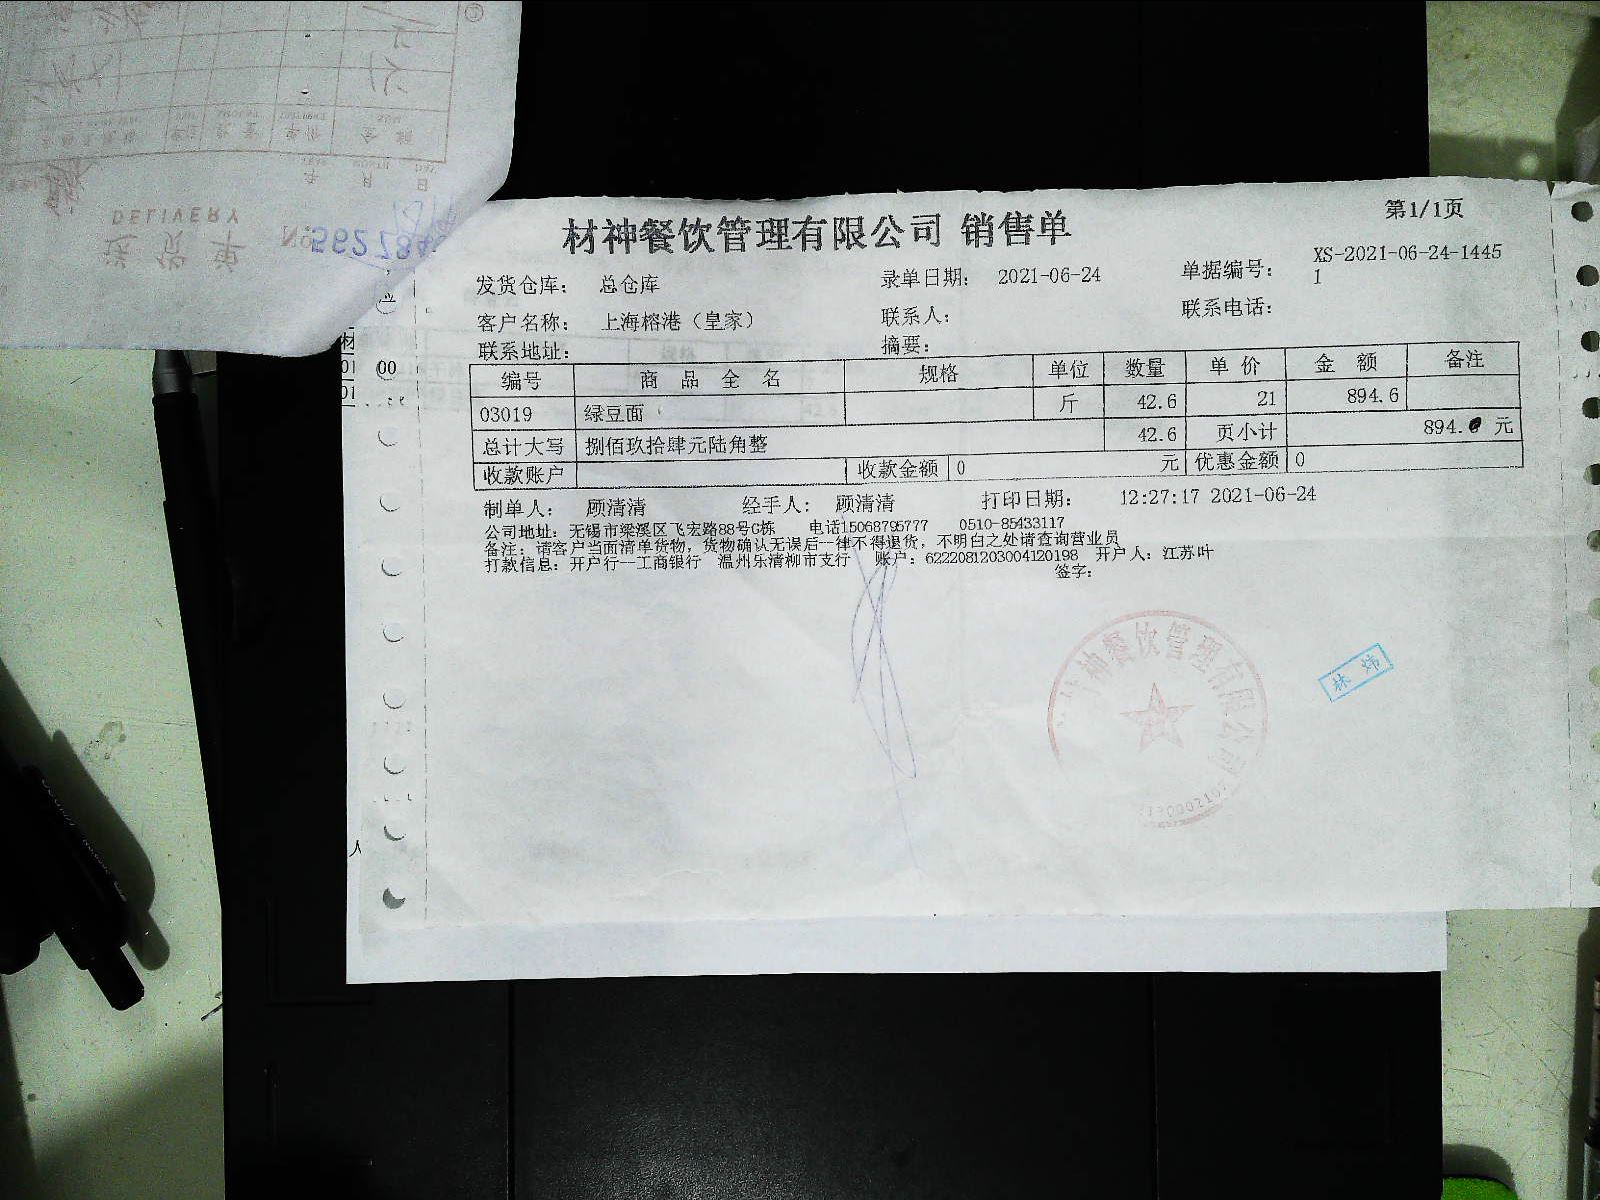 材神餐饮管理有限公司 销售单
第1/1页
发货仓库： 总仓库 录单日期： 2021-06-24 单据编号： XS-2021-06-24-1445
1
客户名称： 上海榕港（皇家） 联系人： 联系电话：
联系地址： 摘要：
编号 商品全名 规格 单位 数量 单价 金额 备注
03019 绿豆面 斤 42.6 21 894.6
总计大写 捌佰玖拾肆元陆角整 42.6 页小计 894. 元
收款账户 收款金额 0 元 优惠金额 0
制单人： 顾清清 经手人： 顾清清 打印日期： 12:27:17 2021-06-24
公司地址：无锡市梁溪区飞宏路88号G栋 电话15068795777 0510-85433117
备注：请客户当面清单货物，货物确认无误后一律不得退货，不明白之处请查询营业员
打款信息：开户行一工商银行 温州乐清柳市支行 账户：6222081203004120198 开户人：江苏叶
签字：
神餐饮管理有限公司
林炜
DELIVERY
送货单
No
年 月 日
数量 单价 金额
00
01
01
材